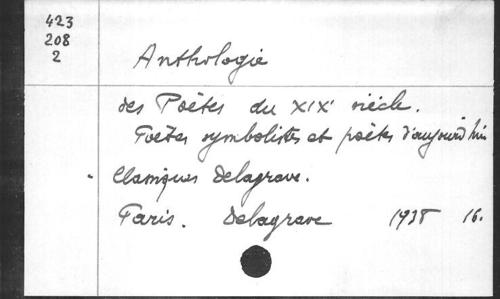 423
208
2
Anthologie
des Poètes du XIXe siècle.
Poètes symbolistes et poètes d'aujourd'hui
Classiques Delagrave.
Paris. Delagrave 1938 16.